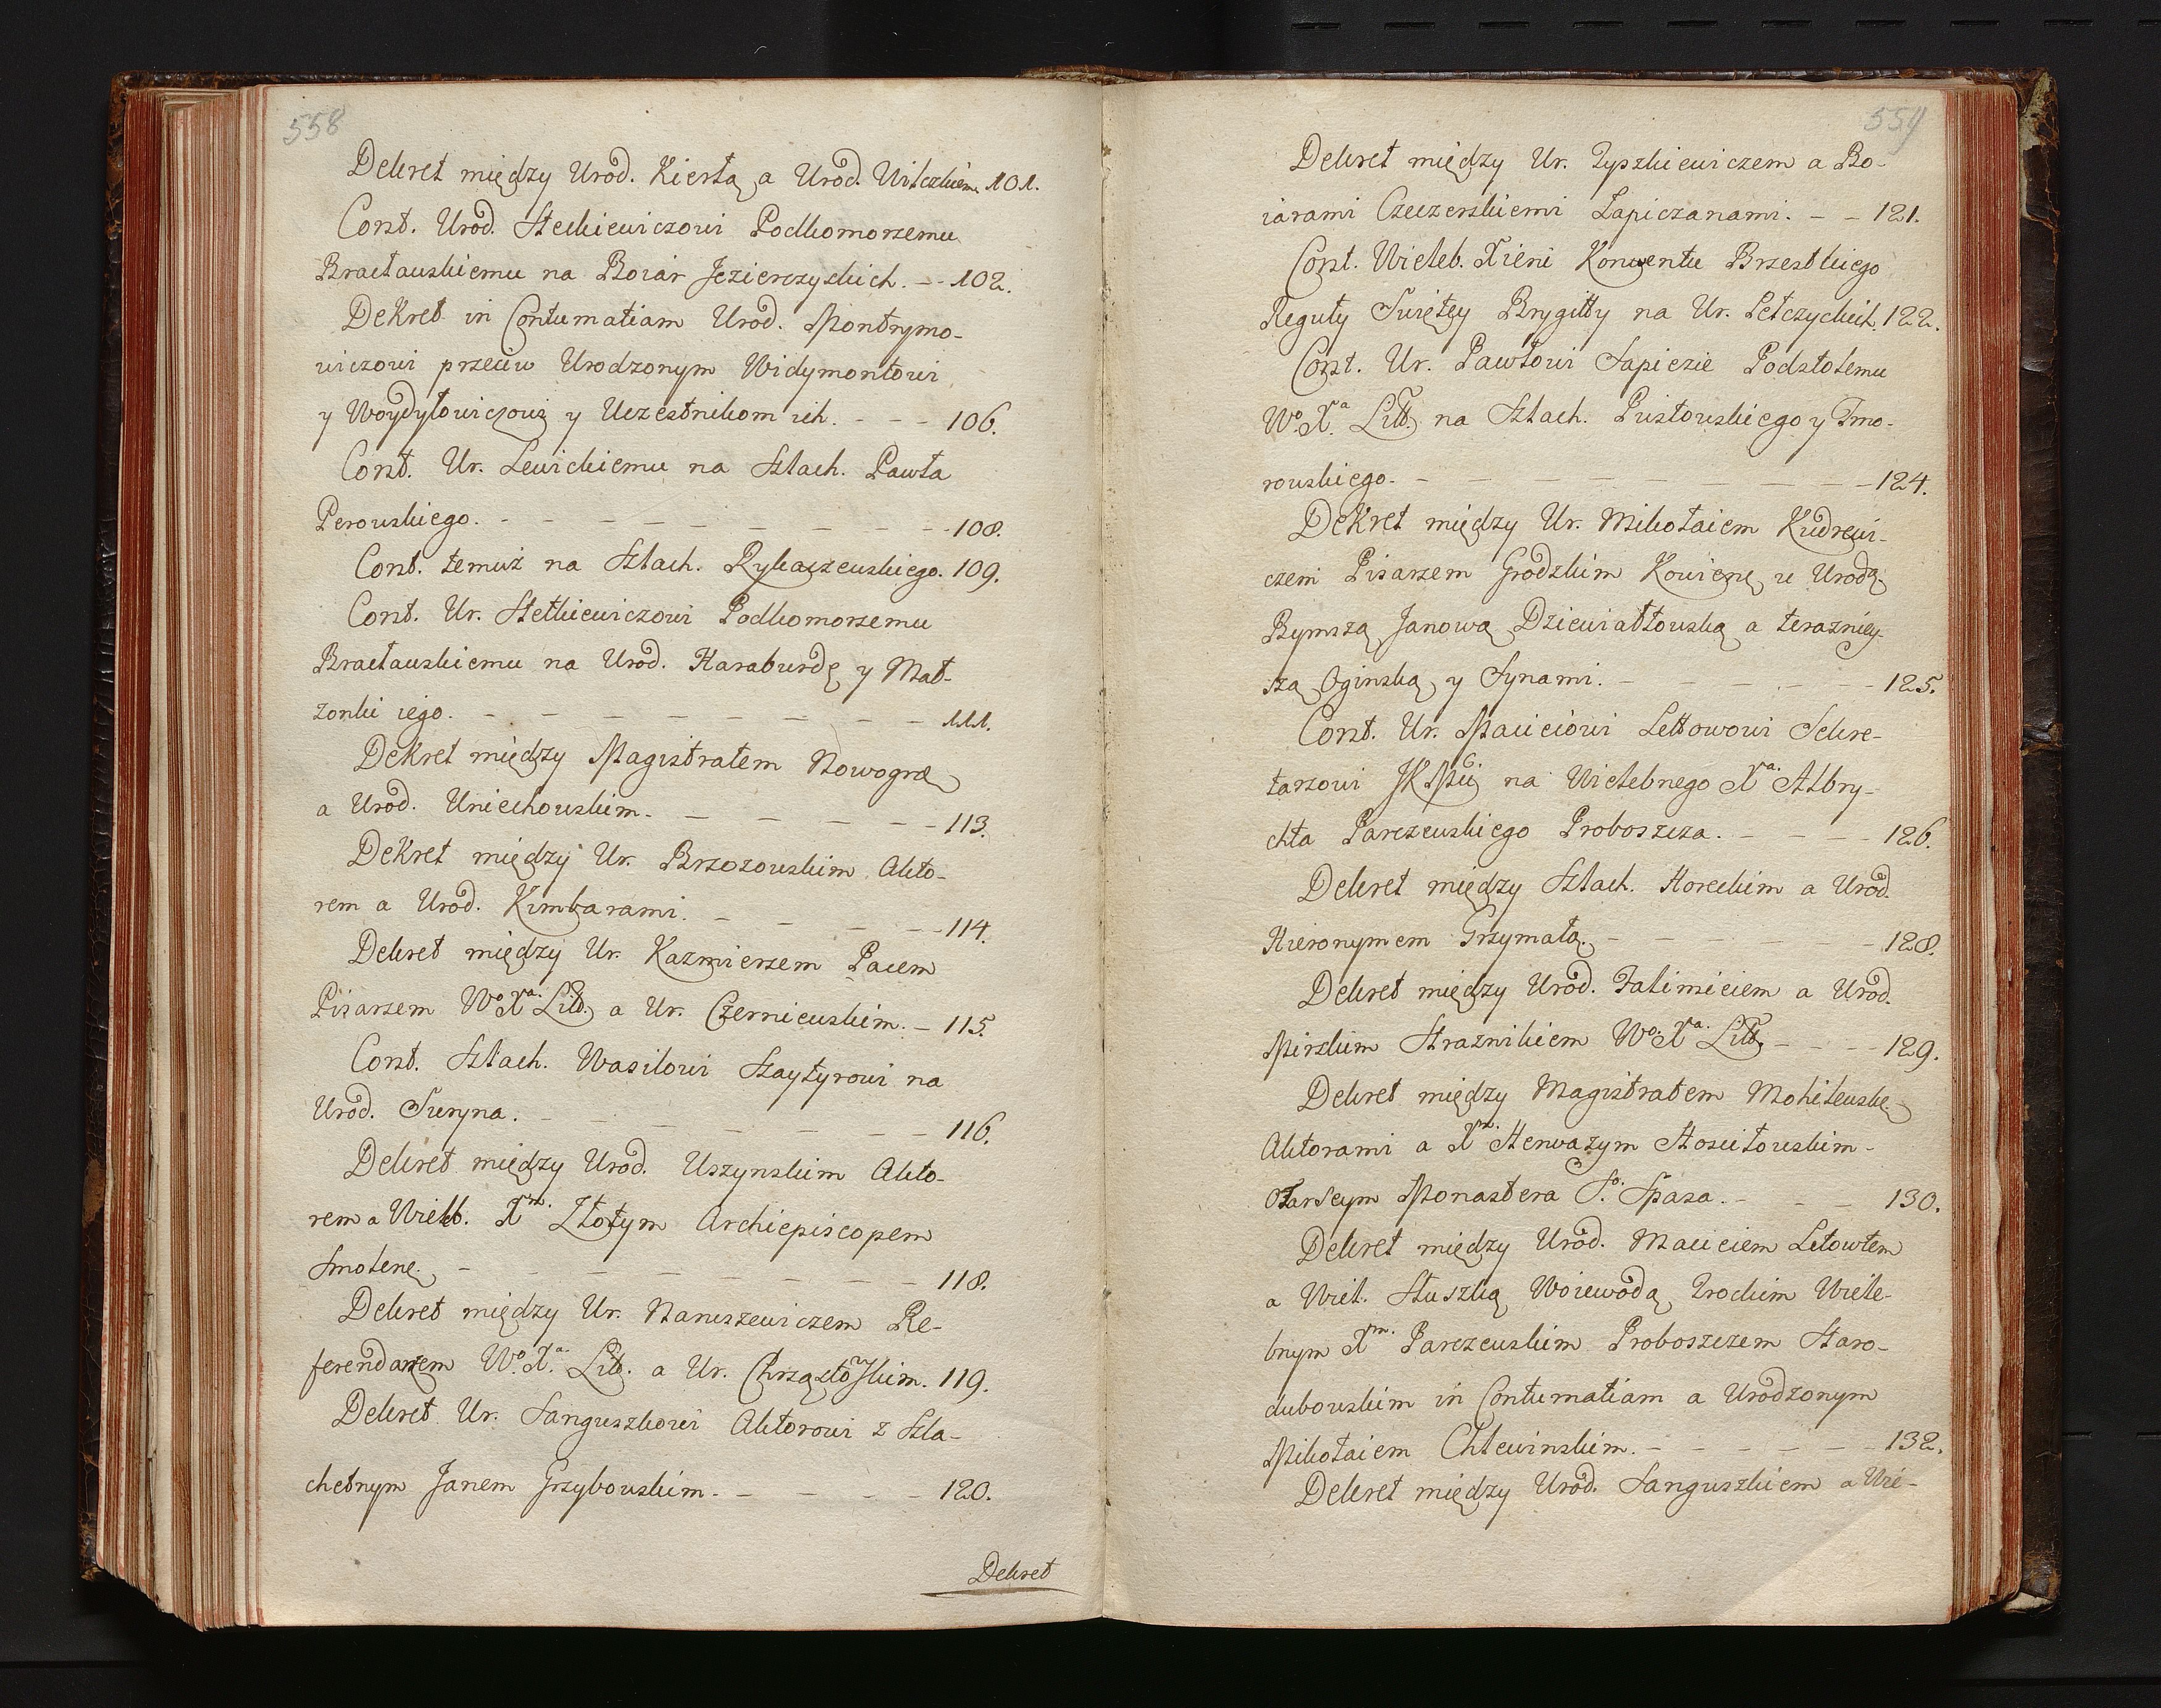 558
Dekret między Urod. Kierłą a Urod. Wilczkiem. 101.
Const. Urod. Stetkiewiczowi Podkomorzemu
Bracławskiemu na Boiar Jezierzyckich. - - 102.
Dekret in Contumatiam Urod. Montrymo-
wiczowi przeciw Urodzonym Widymontowi
y Woydyłowiczowi y Uczestnikom ich. - - - 106.
Const. Ur. Lewickiemu na Szlach. Pawła
Perowskiego. - - - - - - - - - - 108.
Const. temuż na Szlach. Rykaczewskiego. 109.
Const. Ur. Stetkiewiczowi Podkomorzemu
Bracławskiemu na Urod. Haraburdę y Mał-
żonki iego. - - - - - - - - - - 111.
Dekret między Magistratem Nowogro
a Urod. Uniechowskim. - - - - - - 113.
Dekret między Ur. Brzozowskim Akto-
rem a Urod. Kimbarami. - - - - - 114.
Dekret między Ur. Kazmierzem Pacem
Pisarzem Wo Xa. Litt. a Ur. Czerniewskim. - 115.
Const. Szlach. Wasilowi Szaytyrowi na
Urod. Suryna. - - - - - - - - 116.
Dekret między Urod. Uszynskim Akto-
rem a Wieleb. Xm. Złotym Archiepiscopem
Smolenę. - - - - - - - - - 118.
Dekret między Ur. Naruszewiczem Re-
ferendarzem Wo. Xa. Litt. a Ur. Chrząstowskim. 119.
Dekret Ur. Sanguszkowi Aktorowi z Szla-
chetnym Janem Grzybowskim. - - - - - 120.
Dekret
559
Dekret między Ur. Tyszkiewiczem a Bo-
iarami Czeczerskiemi Łapiczanami. - - 121.
Const. Wieleb. Xieni Konwentu Brzestkiego
Reguły Swiętey Brygitty na Ur. Pełczyckich. 122.
Const. Ur. Pawłowi Sapiezie Podstolemu
Wo. Xa. Litt. na Szlach. Pusłowskiego y Imo-
rowskiego. - - - - - - - - - 124.
Dekret między Ur. Mikołaiem Kudrewi-
czem Pisarzem Grodzkim Kowienę u Urodą
Rymszą Janową Dziewiałtowską a teraźniey-
szą Oginską y Synami. - - - - - 125.
Const. Ur. Maciciowi Lettowowi Sekre-
tarzowi JKMći na Wielebnego Xa. Albry-
chta Parczewskiego Proboszcza. - - - - 126.
Dekret między Szlach. Horeckim a Urod.
Hieronymem Grzymałą. - - - - - - 128.
Dekret między Urod. Talimiciem a Urod.
Mirskim Straznikiem Wo. Xa. Litt. - - - - 129.
Dekret między Magistratem Mohilewskę.
Aktorami a Xm. Herwazym Hosciłowskim -
Starszym Monastera So. Spasa. - - - 130.
Dekret między Urod. Macieiem Letowtem
a Wiel. Słuszką Woiewodą Trockim Wiele-
bnym Xm. Parczewskim Proboszczem Staro-
dubowskim in Contumatiam a Urodzonym
Mikołaiem Chlewinskim. - - - - - - 132.
Dekret między Urod. Sanguszkiem a Wie-